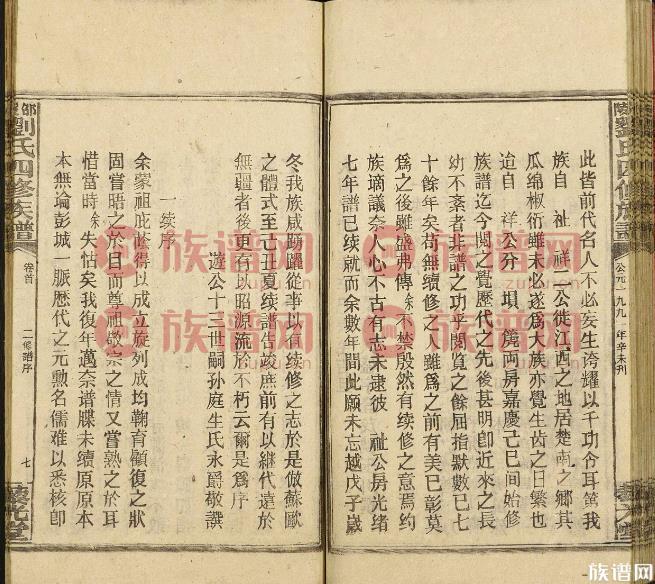 此皆前代名人不必妄生誇耀以千功令耳第我
族自 祉 祥二公徙江西之地居楚南之鄉其
瓜綿椒衍雖未必遂爲大族亦覺生齒之日繁也
迨自 祥公分 塤 篪两房嘉慶己巳間始修
族譜迄今閱之覺歷代之先後甚明卽近來之長
幼不紊者非譜之功乎閱覽之餘屈指默數已七
十餘年矣苟無續修之人雖爲之前有美巳彰莫
爲之後雖盛弗傳余不禁殷然有续修之意焉約
族璃議奈人心不古有志未逮彼 祉公房光绪
七年譜已续就而余數年間此願未忘越戊子歲
公元一九九一年辛未刋
劉氏四修族譜
冬我族咸踴躍從事以有续修之志於是倣蘇歐
之體式至己丑夏续譜告竣庶前有以继代遠於
無疆者後更有以昭源流於不朽云爾是爲序
遊公十三世嗣孫庭生氏永爵敬譔
一续序
余蒙祖庇廕得以成立旋列成均鞠育顧復之狀
固嘗晤之於目而尊祖敬宗之情又嘗熟之於耳
惜當時余失怙矣我復年邁奈谱牒未續原原本
本無論彭城一脈歷代之元勲名儒难以悉核卽
劉氏四修族譜
卷首
二修譜序
七
族谱网
族谱网